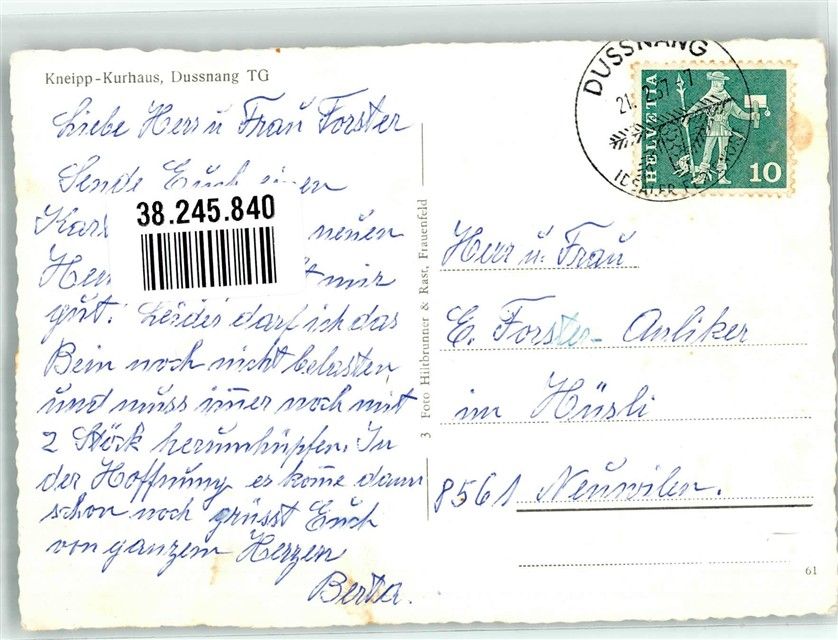 Kneipp-Kurhaus, Dussnang TG
Liebe Herr u Frau Forster
Sende Euch einen
neuen
mir
gut. Leider darf ich das
Bein noch nicht belasten,
und muss im̄er noch mit
2 Stöck herumhüpfen. In
der Hoffnung es kom̄e dann
schon noch grüsst Euch
von ganzem Herzen
Berta.
38.245.840
3 Foto Hildbrunner & Rast, Frauenfeld
DUSSNANG
IDEALER
HELVETIA
10
Herr u. Frau
E. Forster-Anliker
im Hüsli
8561 Neuwilen.
61